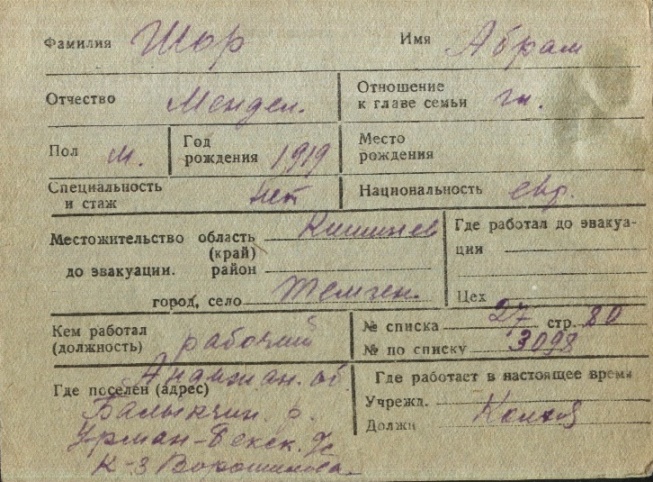 Фамилия Шор Имя Абрам
Отчество Мендел. Отношение к главе семьи гл.
Пол м. Год рождения 1919 Место рождения
Специальность и стаж нет Национальность евр.
Местожительство область (край) Кишинев Где работал до эвакуа-
до эвакуации. район ции
город, село Цех
Кем работал (должность) рабочий № списка 27 стр. 80
№ по списку 3098
Где поселен (адрес) Где работает в настоящее время
Учрежд.
Должн
к-з Ворошилова